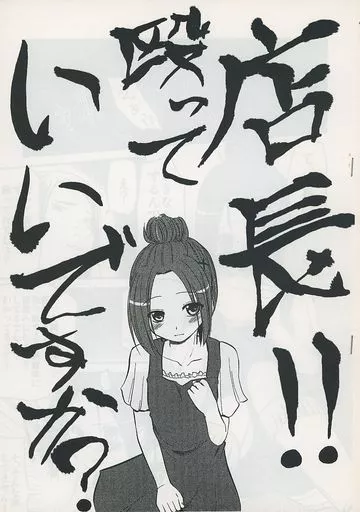 店長!!
殴って
いいですか?